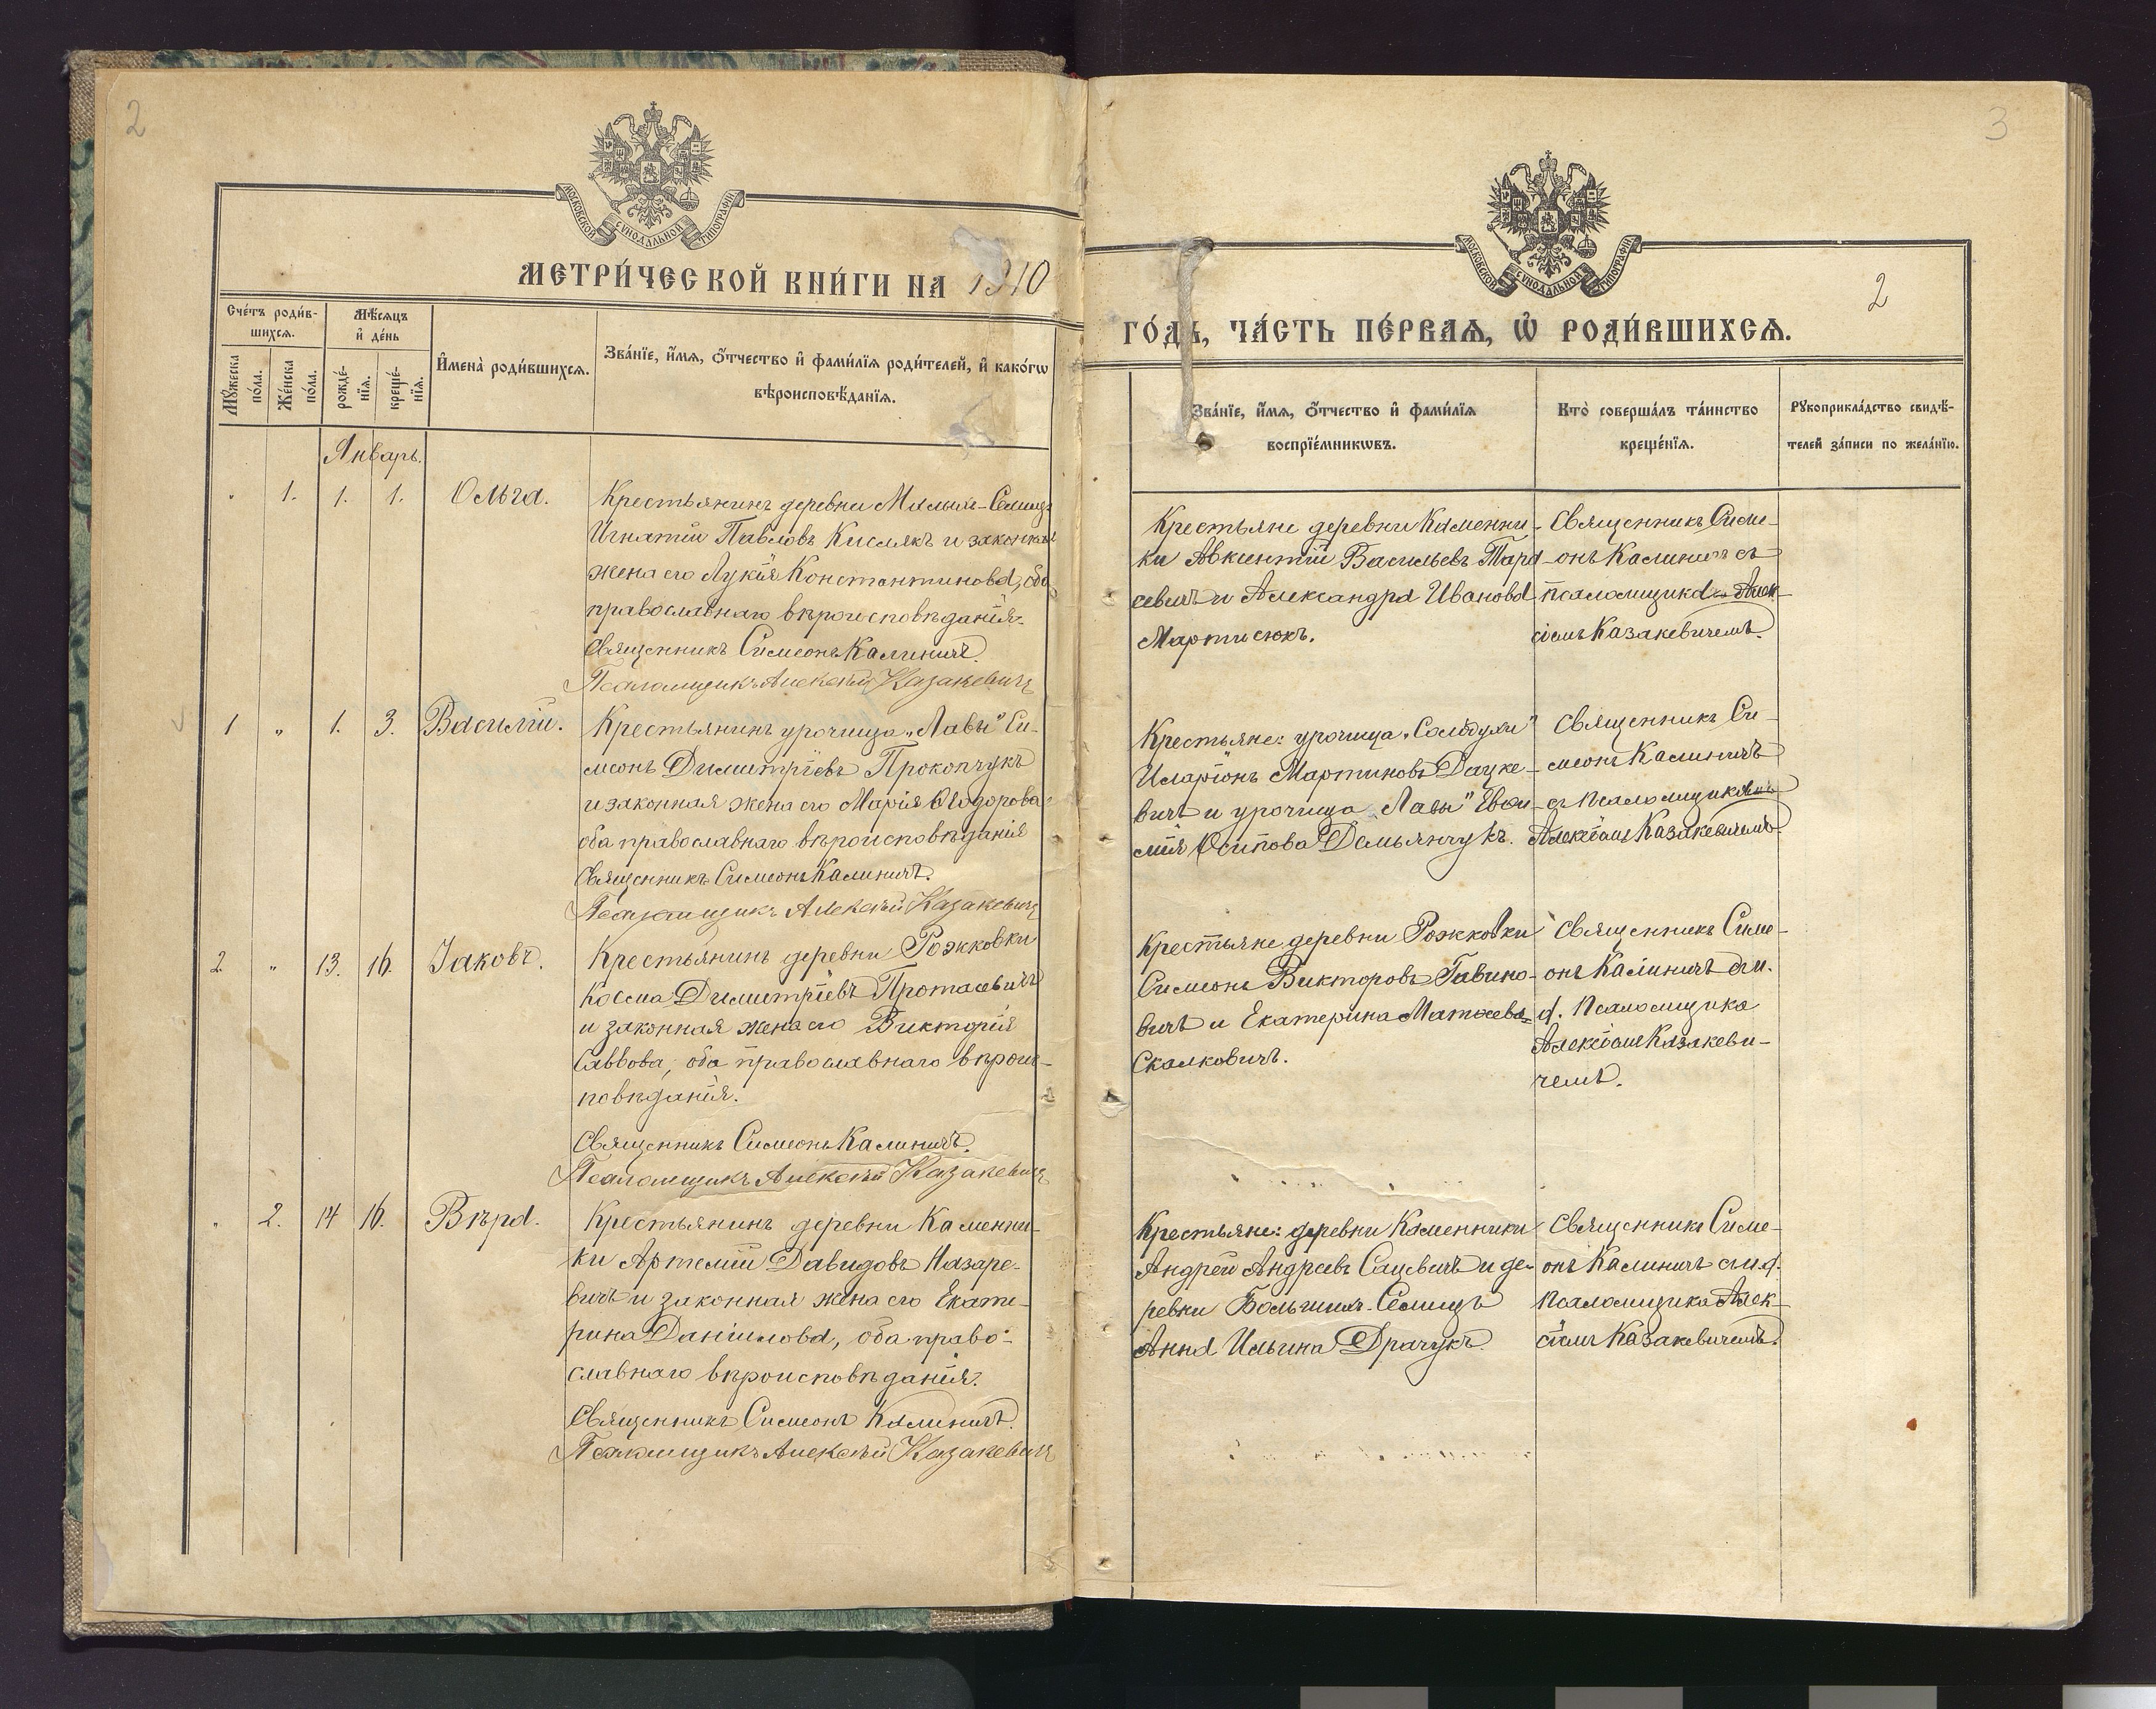 2
МОСКОВСКОЙ СѴНОДАЛЬНОЙ ТИПОГРАФІИ
МЕТРИ́ЧЕСКОЙ КНИ́ГИ НА 1910
Сче́тъ роди́в-
шихсѧ.
Мѣ́сѧцъ
и҆ де́нь
Мꙋ́жеска
по́ла.
Же́нска
по́ла.
рожде́-
нїѧ.
креще́-
нїѧ.
И҆мена̀ роди́вшихсѧ.
Зва́нїе, и҆́мѧ, ѻ҆́тчество и҆ фами́лїѧ роди́телей, и҆ како́гѡ
вѣроисповѣ́данїѧ.
Январь.
" 1. 1. 1. Ольга.
Крестьянинъ деревни Малыхъ-Селищъ
Игнатій Павловъ Кислякъ и законная
жена его Лукія Константинова, оба
православнаго вѣроисповѣданія.
Священникъ Симеонъ Калиничъ.
Псаломщикъ Алексѣй Казакевичъ
1 " 1. 3. Василій.
Крестьянинъ урочища „Лавы" Си-
меонъ Димитріевъ Прокопчукъ
и законная жена его Марія Ѳеодорова
оба православнаго вѣроисповѣданія
Священникъ Симеонъ Калиничъ.
Псаломщикъ Алексѣй Казакевичъ
2 " 13. 16. Іаковъ.
Крестьянинъ деревни Рожковки
Косма Димитріевъ Протасевичъ
и законная жена его Викторія
Саввова, оба православнаго вѣроис-
повѣданія.
Священникъ Симеонъ Калиничъ.
Псаломщикъ Алексѣй Казакевичъ
" 2. 14 16. Вѣра.
Крестьянинъ деревни Каменни-
ки Артемій Давидовъ Назаре-
вичъ и законная жена его Екате-
рина Даніилова, оба право-
славнаго вѣроисповѣданія.
Священникъ Симеонъ Калиничъ.
Псаломщикъ Алексѣй Казакевичъ
3
МОСКОВСКОЙ СѴНОДАЛЬНОЙ ТИПОГРАФІИ
2
ГО́ДЪ, ЧА́СТЬ ПЕ́РВАѦ, Ѡ҆ РОДИ́ВШИХСѦ.
Зва́нїе, и҆́мѧ, ѻ҆́тчество и҆ фами́лїѧ
воспрїе́мникѡвъ.
Кто̀ соверша́лъ та́инство
креще́нїѧ.
Рꙋкоприкла́дство свидѣ́-
телей за́писи по жела́нїю.
Крестьяне деревни Каменни-
ки Авксентій Васильевъ Тара-
севичъ и Александра Иванова
Мартисюкъ.
Священникъ Симе-
онъ Калиничъ съ
псаломщика Алек-
сіемъ Казакевичемъ.
Крестьяне: урочища
Иларіонъ Мартиновъ Дацке-
вичъ и урочища „Лавы" Евфи-
мія Осипова Демьянчукъ.
Священникъ Си-
меонъ Калиничъ
съ псаломщикомъ
Алексіемъ Казакевичемъ.
Крестьяне деревни Рожковки
Симеонъ Викторовъ Гавино-
вичъ и Екатерина Матѳеева
Скалковичъ.
Священникъ Симе-
онъ Калиничъ съ и.
д. псаломщика
Алексіемъ Казакеви-
чемъ.
Крестьяне: деревни Каменники
Андрей Андреевъ Сацевичъ и де-
ревни Большихъ-Селищъ
Анна Ильина Драчукъ.
Священникъ Симе-
онъ Калиничъ съ и. д.
псаломщика Алек-
сіемъ Казакевичемъ.